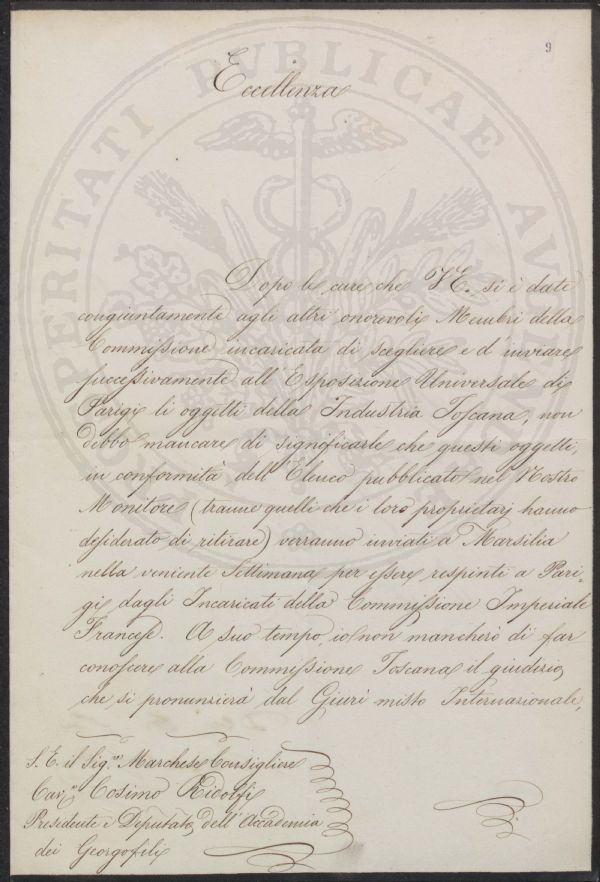 9
PROSPERITATI PUBLICAE AUGEN
Eccellenza
Dopo le cure che V.E. si è date
congiuntamente agli altri onorevoli Membri della
Commissione incaricata di scegliere e d'inviare
successivamente all'Esposizione Universale di
Parigi li oggetti della Industria Toscana, non
debbo mancare di significarle che questi oggetti,
in conformità dell'Elenco pubblicato nel Nostro
Monitore (tranne quelli che i loro proprietarj hanno
desiderato di ritirare) verranno inviati a Marsilia
nella veniente Settimana per essere respinti a Pari-
gi dagli Incaricati della Commissione Imperiale
Francese. A suo tempo, io non mancherò di far
conoscere alla Commissione Toscana il giudizio,
che si pronunzierà dal Giurì misto Internazionale,
S. E. il Sig.re Marchese Consigliere
Cav.e Cosimo Ridolfi
Presidente e Deputato dell'Accademia
dei Georgofili